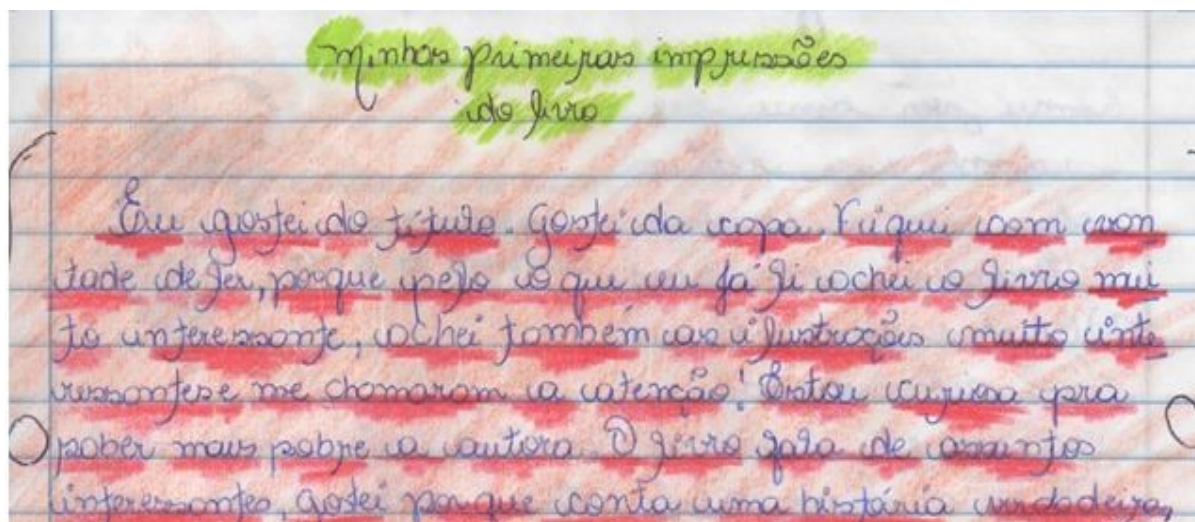 Minhas primeiras impressões
do livro
Eu gostei do título. Gostei da capa. Fiquei com von
tade de ler, porque pelo o que eu já li achei o livro mui
to interessante, achei também as ilustrações muito inte
ressantes e me chamaram a atenção! Estou curiosa pra
saber mais sobre a autora. O livro fala de assuntos
interessantes, gostei porque conta uma história verdadeira,